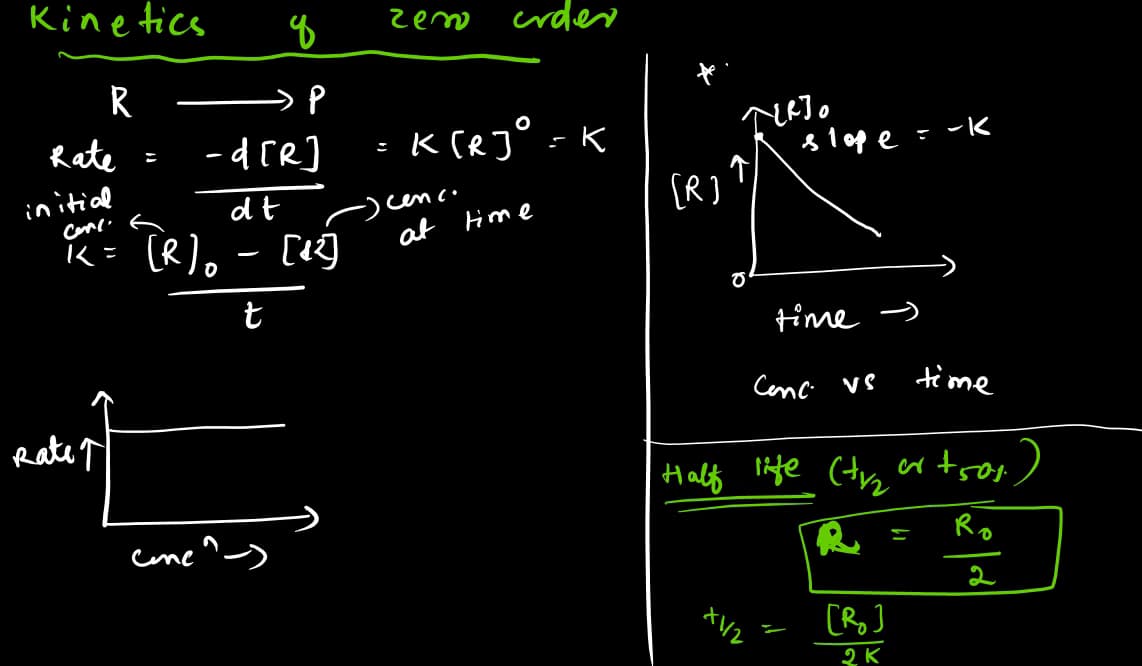 Kinetics of zero order
R ⟶ P
Rate = -d[R]/dt = K[R]⁰ = K
initial conc.
conc. at time
K = [R]₀ - [R] / t
Rate ↑
concⁿ →
*
[R]₀
slope = -K
[R] ↑
0
time →
Conc. vs time
Half life (t1/2 or t50%)
R = R₀/2
t1/2 = [R₀]/2K